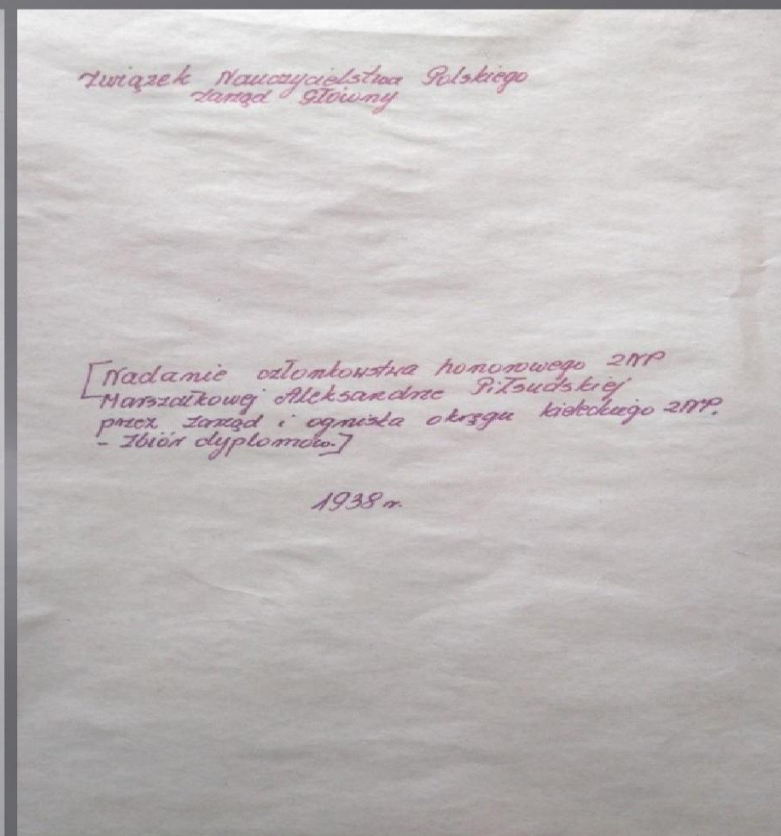 Związek Nauczycielstwa Polskiego
Zarząd Główny
[Nadanie członkowstwa honorowego ZNP
Marszałkowej Aleksandrze Piłsudskiej
przez Zarząd i ogniska okręgu kieleckiego ZNP.
- Zbiór dyplomów.]
1938 r.